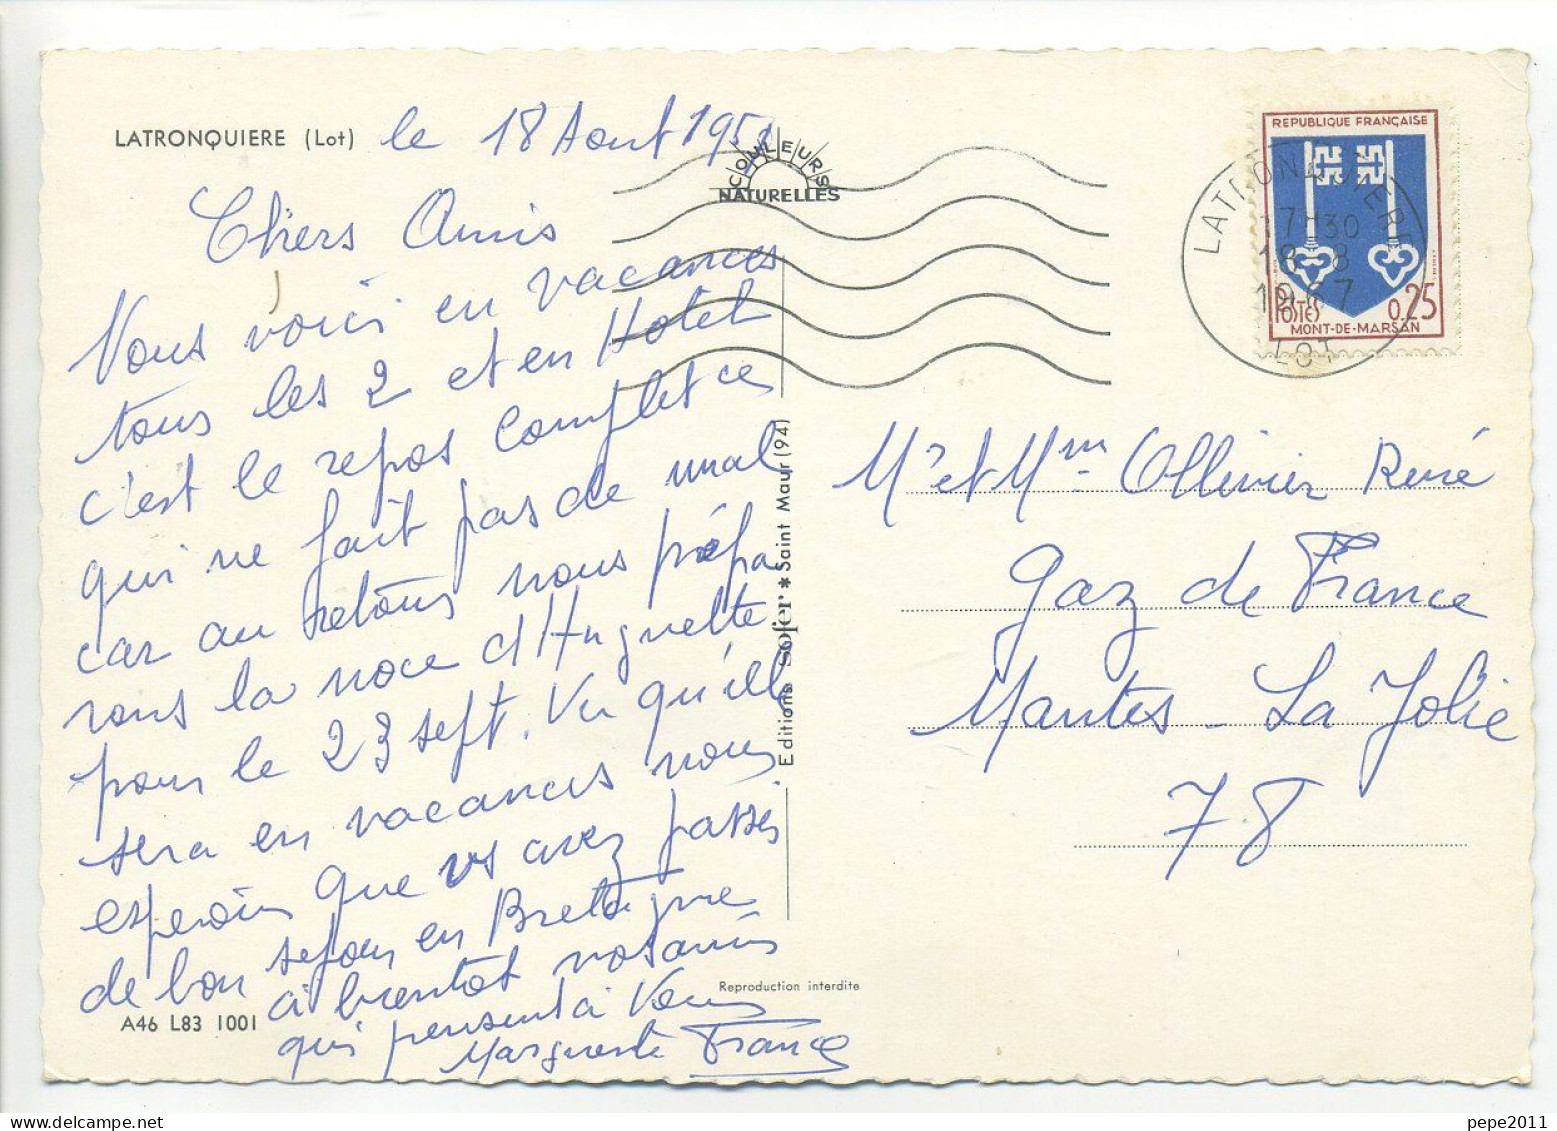 LATRONQUIERE (Lot)
le 18 Aout 195
Chers Amis
Nous voici en vacances
tous les 2 et en Hotel
c'est le repos complet ce
qui ne fait pas de mal
car au retour nous prépa
rons la noce d'Huguette
pour le 23 sept. Vu qu'elle
sera en vacances nous
esperons que vs avez passés
de bon sejour en Bretagne
à bientot vos amis
qui pensent à Vous
Marguerite France
A46 L83 1001
COULEURS
NATURELLES
Editions sofer * Saint Maur (94)
Reproduction interdite
REPUBLIQUE FRANÇAISE
POSTES 0,25
MONT-DE-MARSAN
LATRONQUIERE
17H30
18-8
1967
LOT
Mr et Mme Ollivier René
Gaz de France
Mantes - La Jolie
78
pepe2011
www.delcampe.net